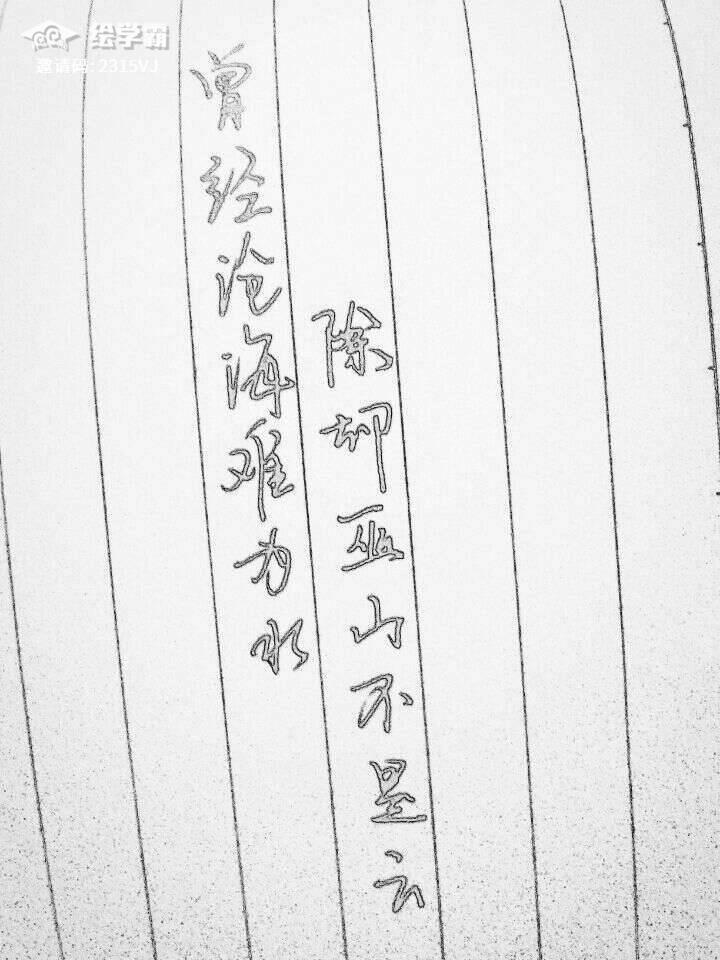 绘学霸
邀请码: 2315VJ
曾经沧海难为水
除却巫山不是云